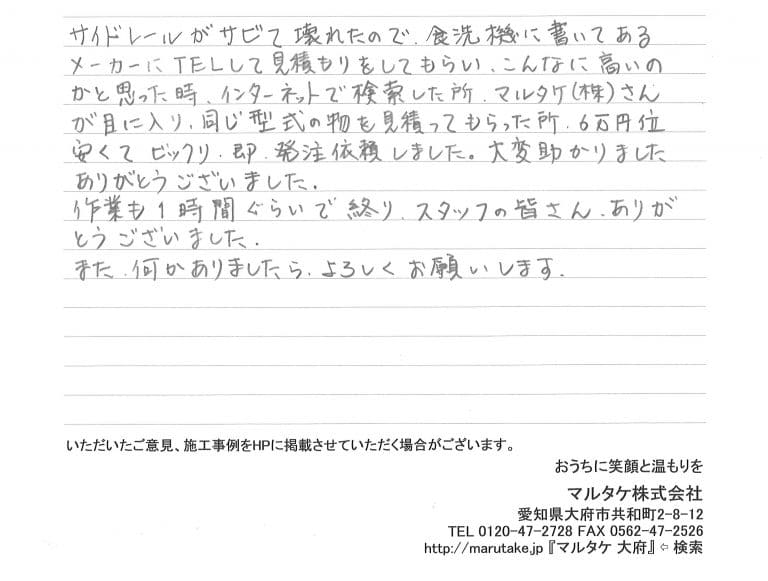 サイドレールがサビて壊れたので、食洗機に書いてある
メーカーにTELして見積もりをしてもらい、こんなに高いの
かと思った時、インターネットで検索した所、マルタケ(株)さん
が目に入り、同じ型式の物を見積ってもらった所、6万円位
安くてビックリ、即、発注依頼しました。大変助かりました
ありがとうございました。
作業も1時間ぐらいで終り、スタッフの皆さん、ありが
とうございました。
また、何かありましたら、よろしくお願いします。
いただいたご意見、施工事例をHPに掲載させていただく場合がございます。
おうちに笑顔と温もりを
マルタケ株式会社
愛知県大府市共和町2-8-12
TEL 0120-47-2728 FAX 0562-47-2526
http://marutake.jp 『マルタケ 大府』⇦ 検索